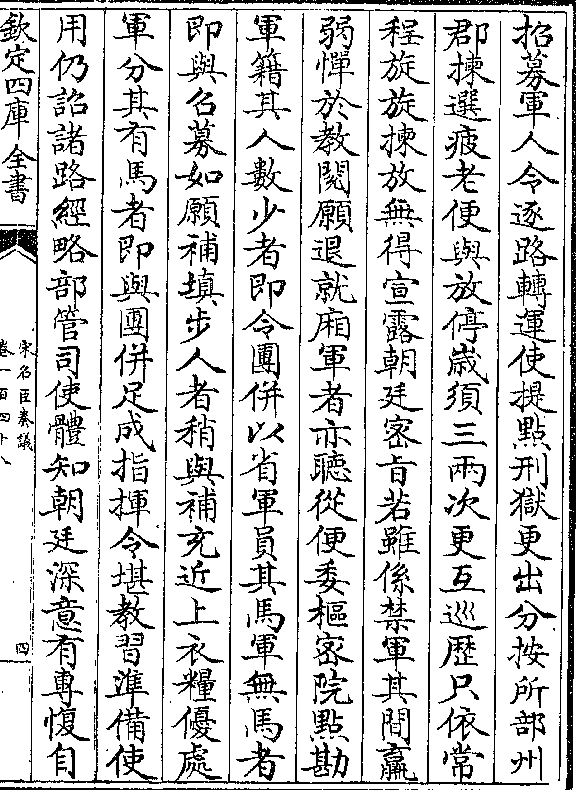 招募軍人令逐路轉運使提點刑獄更出分按所部州
郡揀選疲老便與放停歲須三兩次更互巡歷只依常
程旋旋揀放無得宣露朝廷密旨若雖係禁軍其間羸
弱憚於教閱願退就廂軍者亦聽從便委樞密院點勘
軍籍其人數少者即令團併以省軍員其馬軍無馬者
即與召募如願補填步人者稍與補充近上衣糧優處
軍分其有馬者即與團併足成指揮令堪教習準備使
用仍詔諸路經略部管司使體知朝廷深意有專愎自
欽定四庫全書
宋名臣奏議
卷一百四十八
四